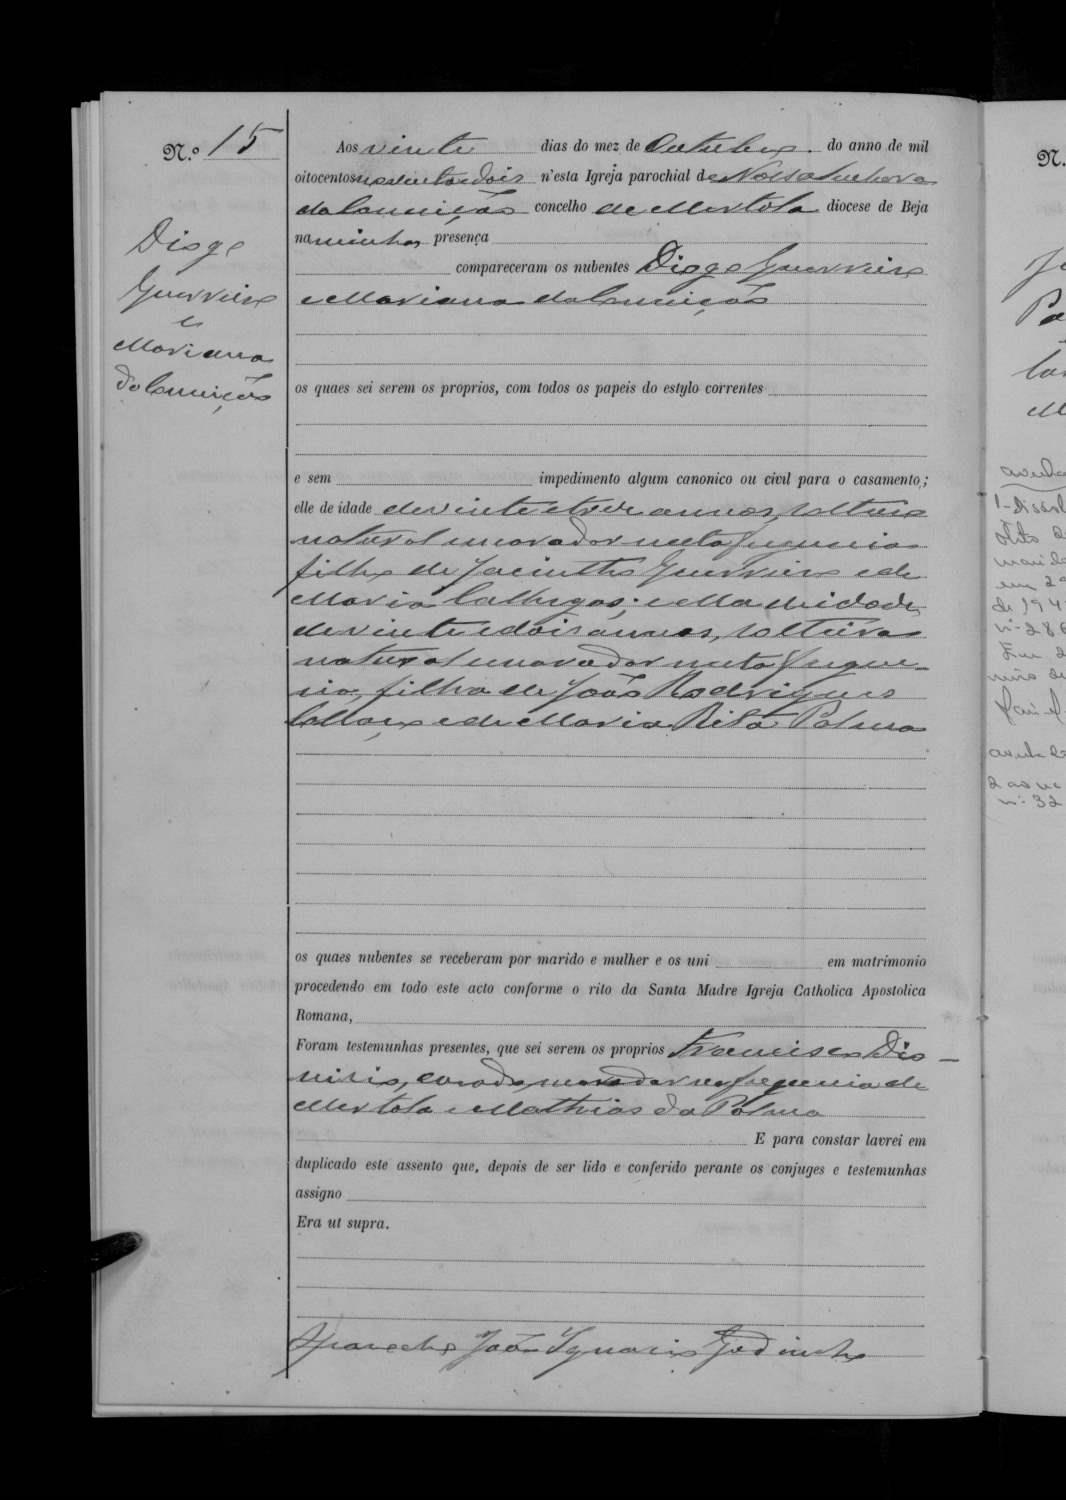 N.º 15
Diogo
Guerreiro
e
Mariana
da Conceição
Aos vinte dias do mez de Outubro do anno de mil
oitocentos noventa e dois n'esta Igreja parochial de Nossa Senhora
da Conceição concelho de Mertola diocese de Beja
na minha presença
compareceram os nubentes Diogo Guerreiro
e Mariana da Conceição
os quaes sei serem os proprios, com todos os papeis do estylo correntes
e sem impedimento algum canonico ou civil para o casamento;
elle de idade de vinte e tres annos, solteiro
natural e morador nesta freguesia
filho de Jacintho Guerreiro e de
Maria ; e ella de idade
de vinte e dois annos, solteira
natural e morador nesta fregue-
sia, filha de João Rodrigues
Collaço e de Maria Rita Palma
os quaes nubentes se receberam por marido e mulher e os uni em matrimonio
procedendo em todo este acto conforme o rito da Santa Madre Igreja Catholica Apostolica
Romana,
Foram testemunhas presentes, que sei serem os proprios Francisco Dio-
nisio, casado, morador na freguesia de
Mertola e Mathias da Palma
E para constar lavrei em
duplicado este assento que, depois de ser lido e conferido perante os conjuges e testemunhas
assigno
Era ut supra.
O Parocho João Ignacio Godinho
N.